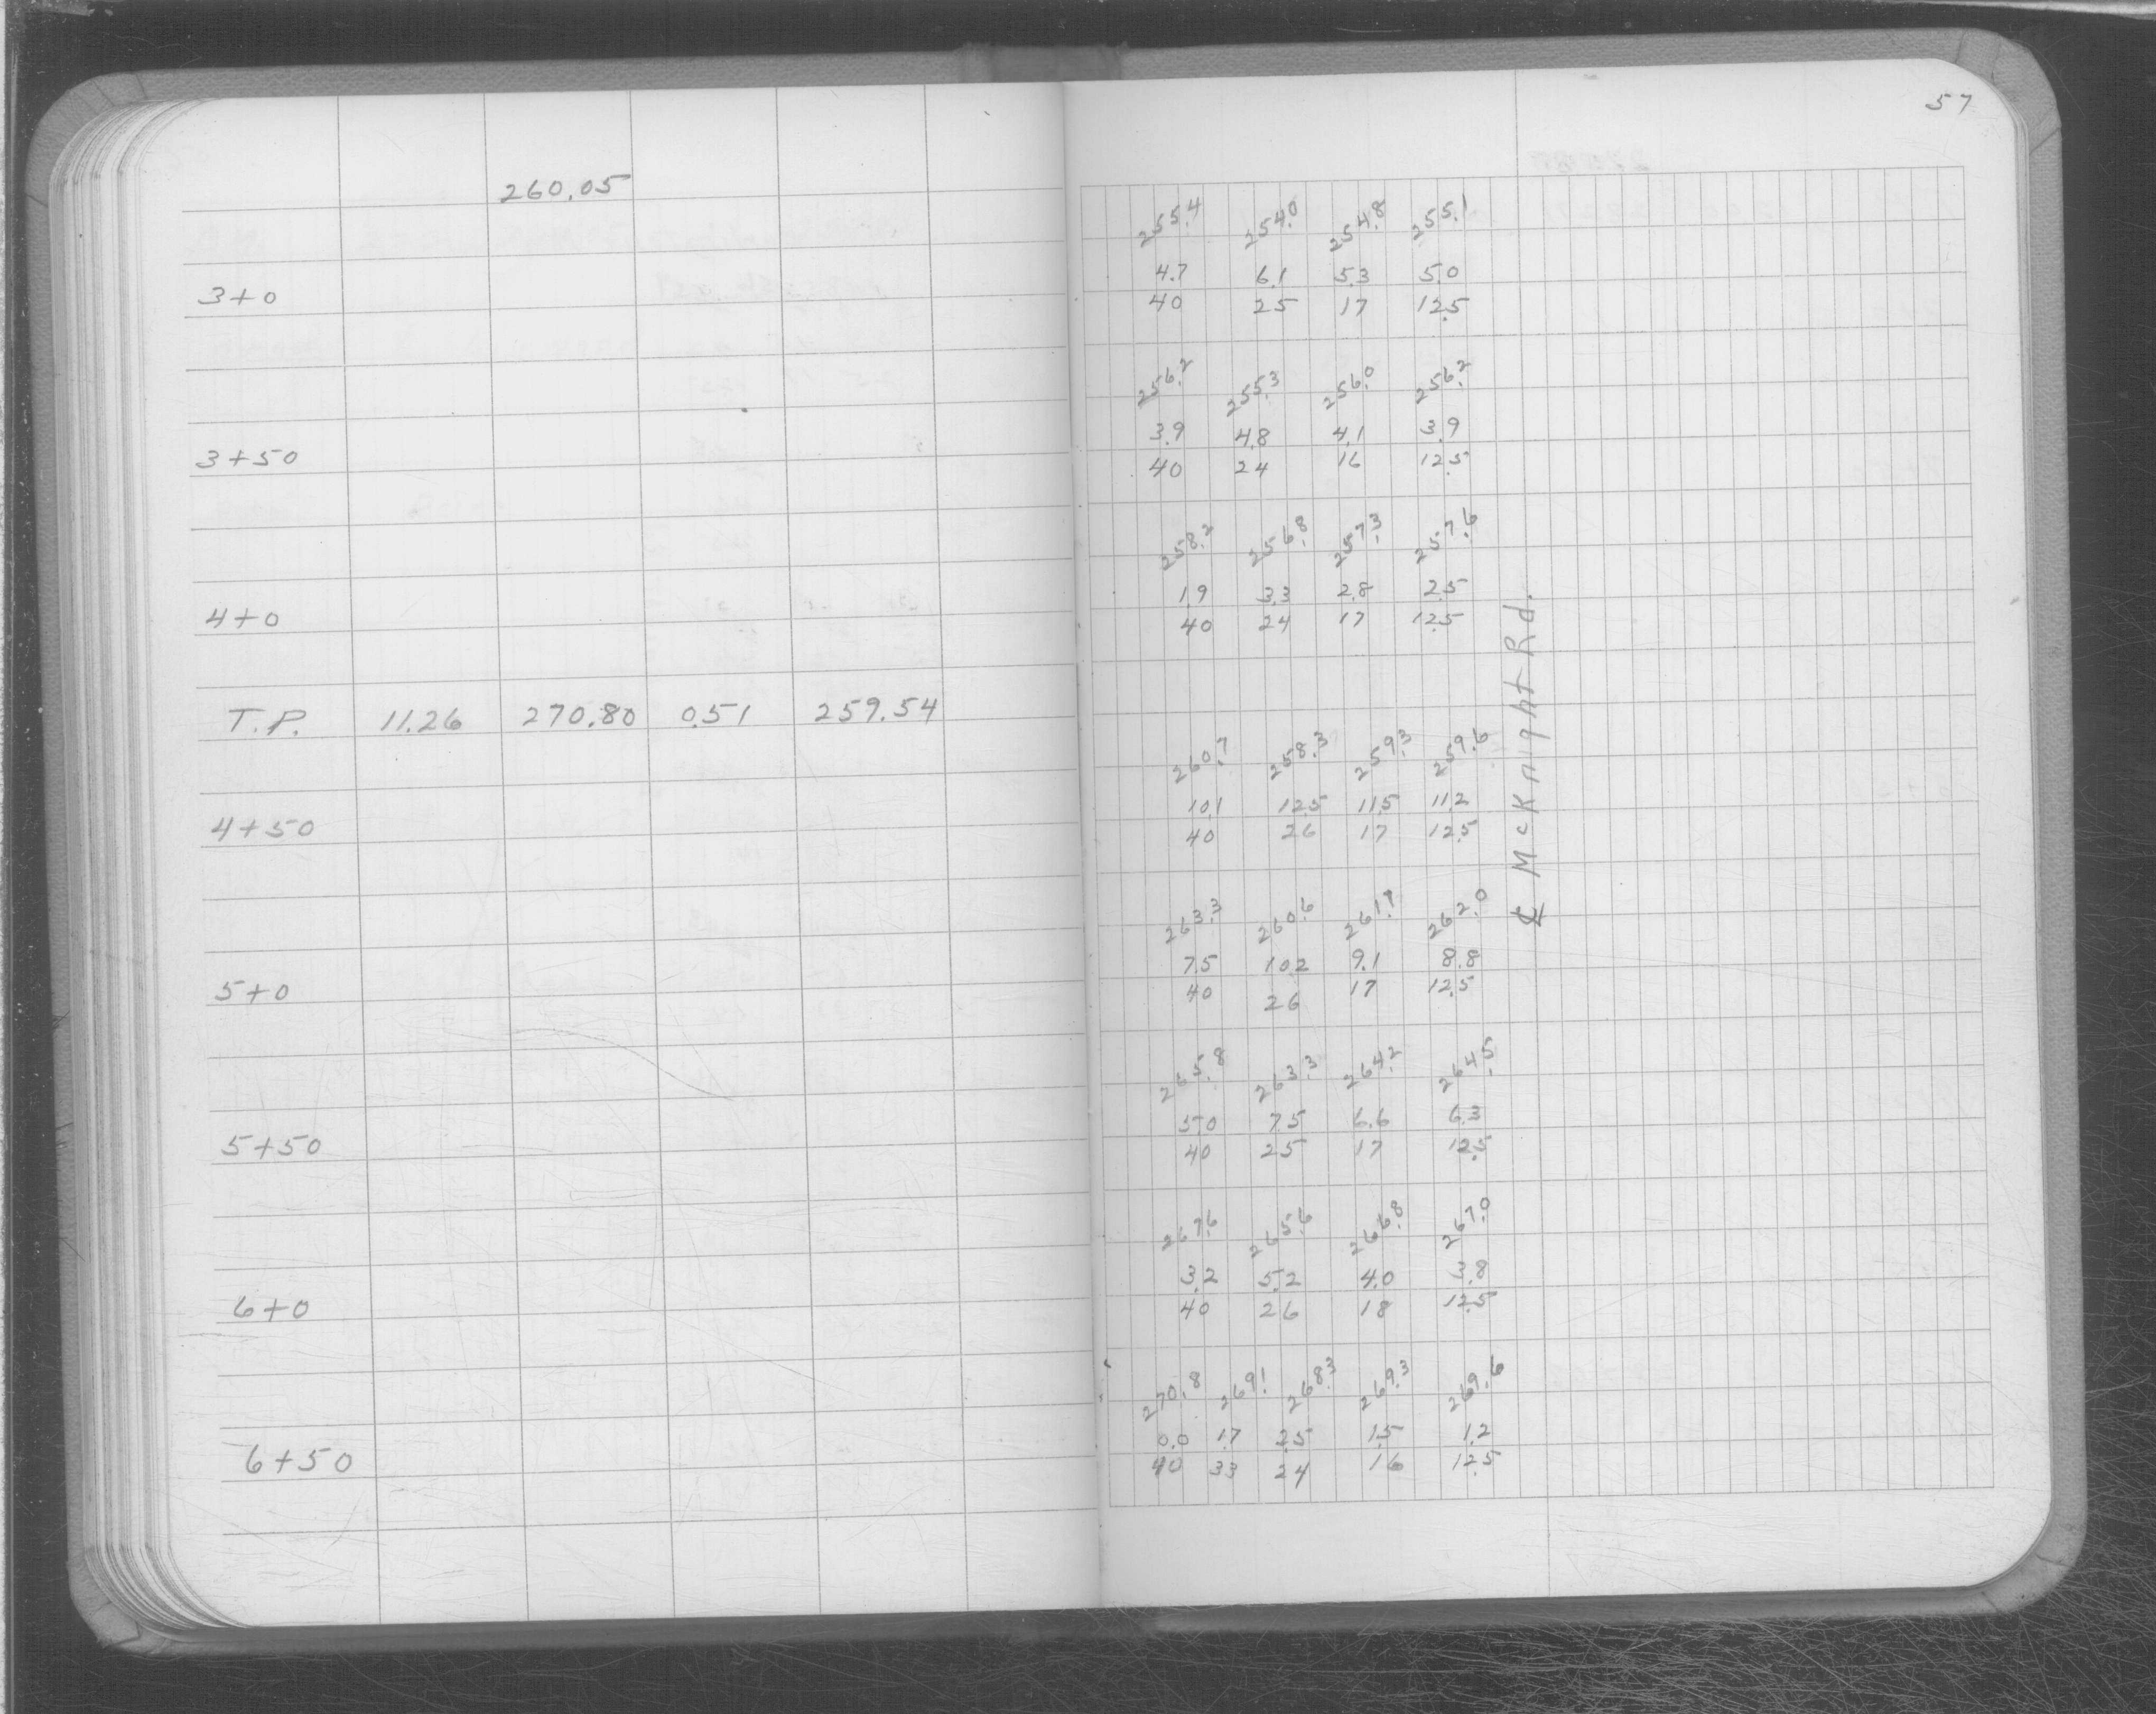 57
260.05
255.4 254.0 254.8 255.1
4.7 6.1 5.3 5.0
3+0 40 25 17 12.5
256.2 255.3 256.0 256.2
3.9 4.8 4.1 3.9
3+50 40 24 16 12.5
258.2 256.8 257.3 257.6
1.9 3.3 2.8 2.5
4+0 40 24 17 12.5
T.P. 11.26 270.80 0.51 259.54
260.7 258.3 259.3 259.6
10.1 12.5 11.5 11.2
4+50 40 26 17 12.5
263.3 260.6 261.7 262.0
7.5 10.2 9.1 8.8
5+0 40 26 17 12.5
265.8 263.3 264.2 264.5
5.0 7.5 6.6 6.3
5+50 40 25 17 12.5
267.6 265.6 266.8 267.0
3.2 5.2 4.0 3.8
6+0 40 26 18 12.5
270.8 269.1 268.3 269.3 269.6
0.0 1.7 2.5 1.5 1.2
6+50 40 33 24 16 12.5
℄ McKnight Rd.